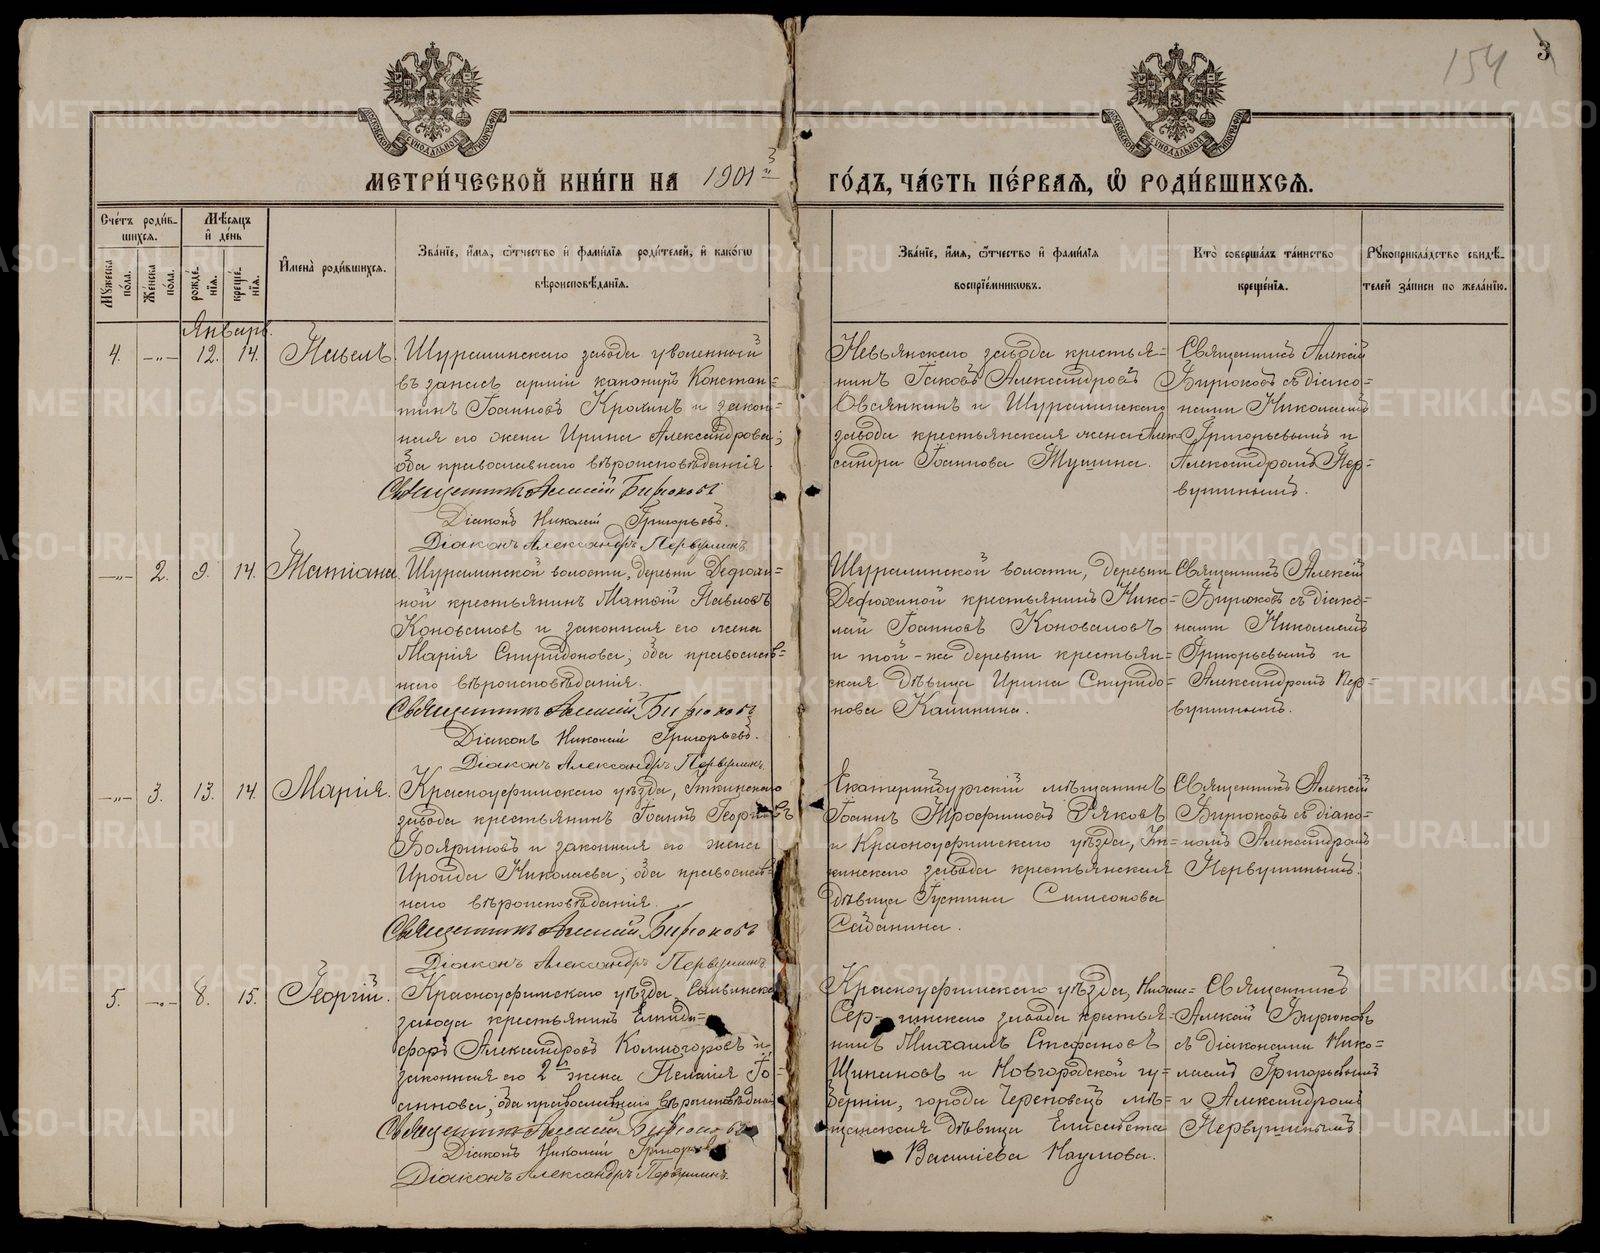 154
3
МЕТРИ́ЧЕСКОЙ КНИ́ГИ НА 1901й
ГО́ДЪ, ЧА́СТЬ ПЕ́РВАЯ, Ѽ РОДИ́ВШИХСЯ.
Сче́тъ роди́в-
шихся.
Му́жеска по́ла.
Же́нска по́ла.
Мѣ́сяцъ
и҆ де́нь
рожде́нїя.
креще́нїя.
И҆мена̀ роди́вшихся.
Зва́нїе, и҆́мя, ѻ҆́тчество и҆ фами́лїя роди́телей, и҆ како́гѡ
вѣроисповѣ́данїя.
Зва́нїе, и҆́мя, ѻ҆́тчество и҆ фами́лїя
воспрїе́мниковъ.
Кто̀ соверша́лъ та́инство
креще́нїя.
Рꙋкоприкла́дство свидѣ́-
телей за́писи по жела́нїю.
Январь.
4.
—„—
12.
14.
Павелъ.
Шуралинскаго завода уволенный
въ запасъ арміи канониръ Констан=
тинъ Іоанновъ Крохинъ и закон=
ная его жена Ирина Александрова;
оба православнаго вѣроисповѣданія.
Священникъ Алексій Бирюковъ
Діаконъ Николай Григорьевъ.
Діаконъ Александръ Первушинъ.
Невьянскаго завода крестья=
нинъ Іаковъ Александровъ
Овсянкинъ и Шуралинскаго
завода крестьянская жена Алек=
сандра Іоаннова Тушина.
Священникъ Алексій
Бирюковъ съ діако=
нами Николаемъ
Григорьевымъ и
Александромъ Пер=
вушинымъ.
—„—
2.
9.
14.
Татіана.
Шуралинской волости, деревни
ной крестьянинъ Матѳій Павловъ
Коноваловъ и законная его жена
Марія Спиридонова; оба православ=
наго вѣроисповѣданія.
Священникъ Алексій Бирюковъ
Діаконъ Николай Григорьевъ.
Діаконъ Александръ Первушинъ.
Шуралинской волости, деревни
крестьянинъ Нико=
лай Іоанновъ Коноваловъ
и той-же деревни крестьян=
ская дѣвица Ирина Спиридо=
нова Калинина.
Священникъ Алексій
Бирюковъ съ діако=
нами Николаемъ
Григорьевымъ и
Александромъ Пер=
вушинымъ.
—„—
3.
13.
14.
Марія.
Красноуфимскаго уѣзда, Уткинскаго
завода крестьянинъ Іоаннъ Георгіевъ
Бояриновъ и законная его жена
Ираида Николаева; оба православ=
наго вѣроисповѣданія.
Священникъ Алексій Бирюковъ
Діаконъ Александръ Первушинъ.
Екатеринбургскій мѣщанинъ
Іоаннъ Трофимовъ
и Красноуфимскаго уѣзда, Ут=
кинскаго завода крестьянская
дѣвица Іустина Симеонова
Священникъ Алексій
Бирюковъ съ діако=
номъ Александромъ
Первушинымъ.
5.
—„—
8.
15.
Георгій.
Красноуфимскаго уѣзда, Сылвинскаго
завода крестьянинъ Елпиди=
форъ Александровъ Колмогоровъ и
законная его 2я жена Пелагія Іо=
аннова; оба православнаго вѣроисповѣданія
Священникъ Алексій Бирюковъ
Діаконъ Николай Григорьевъ
Діаконъ Александръ Первушинъ.
Красноуфимскаго уѣзда, Нижне=
Сергинскаго завода крестья=
нинъ Михаилъ Стефановъ
Щипановъ и Новгородской гу=
берніи, города Череповецъ мѣ=
щанская дѣвица Елисавета
Василіева Наумова.
Священникъ
Алексій Бирюковъ
съ діаконами Нико=
лаемъ Григорьевымъ
и Александромъ
Первушинымъ